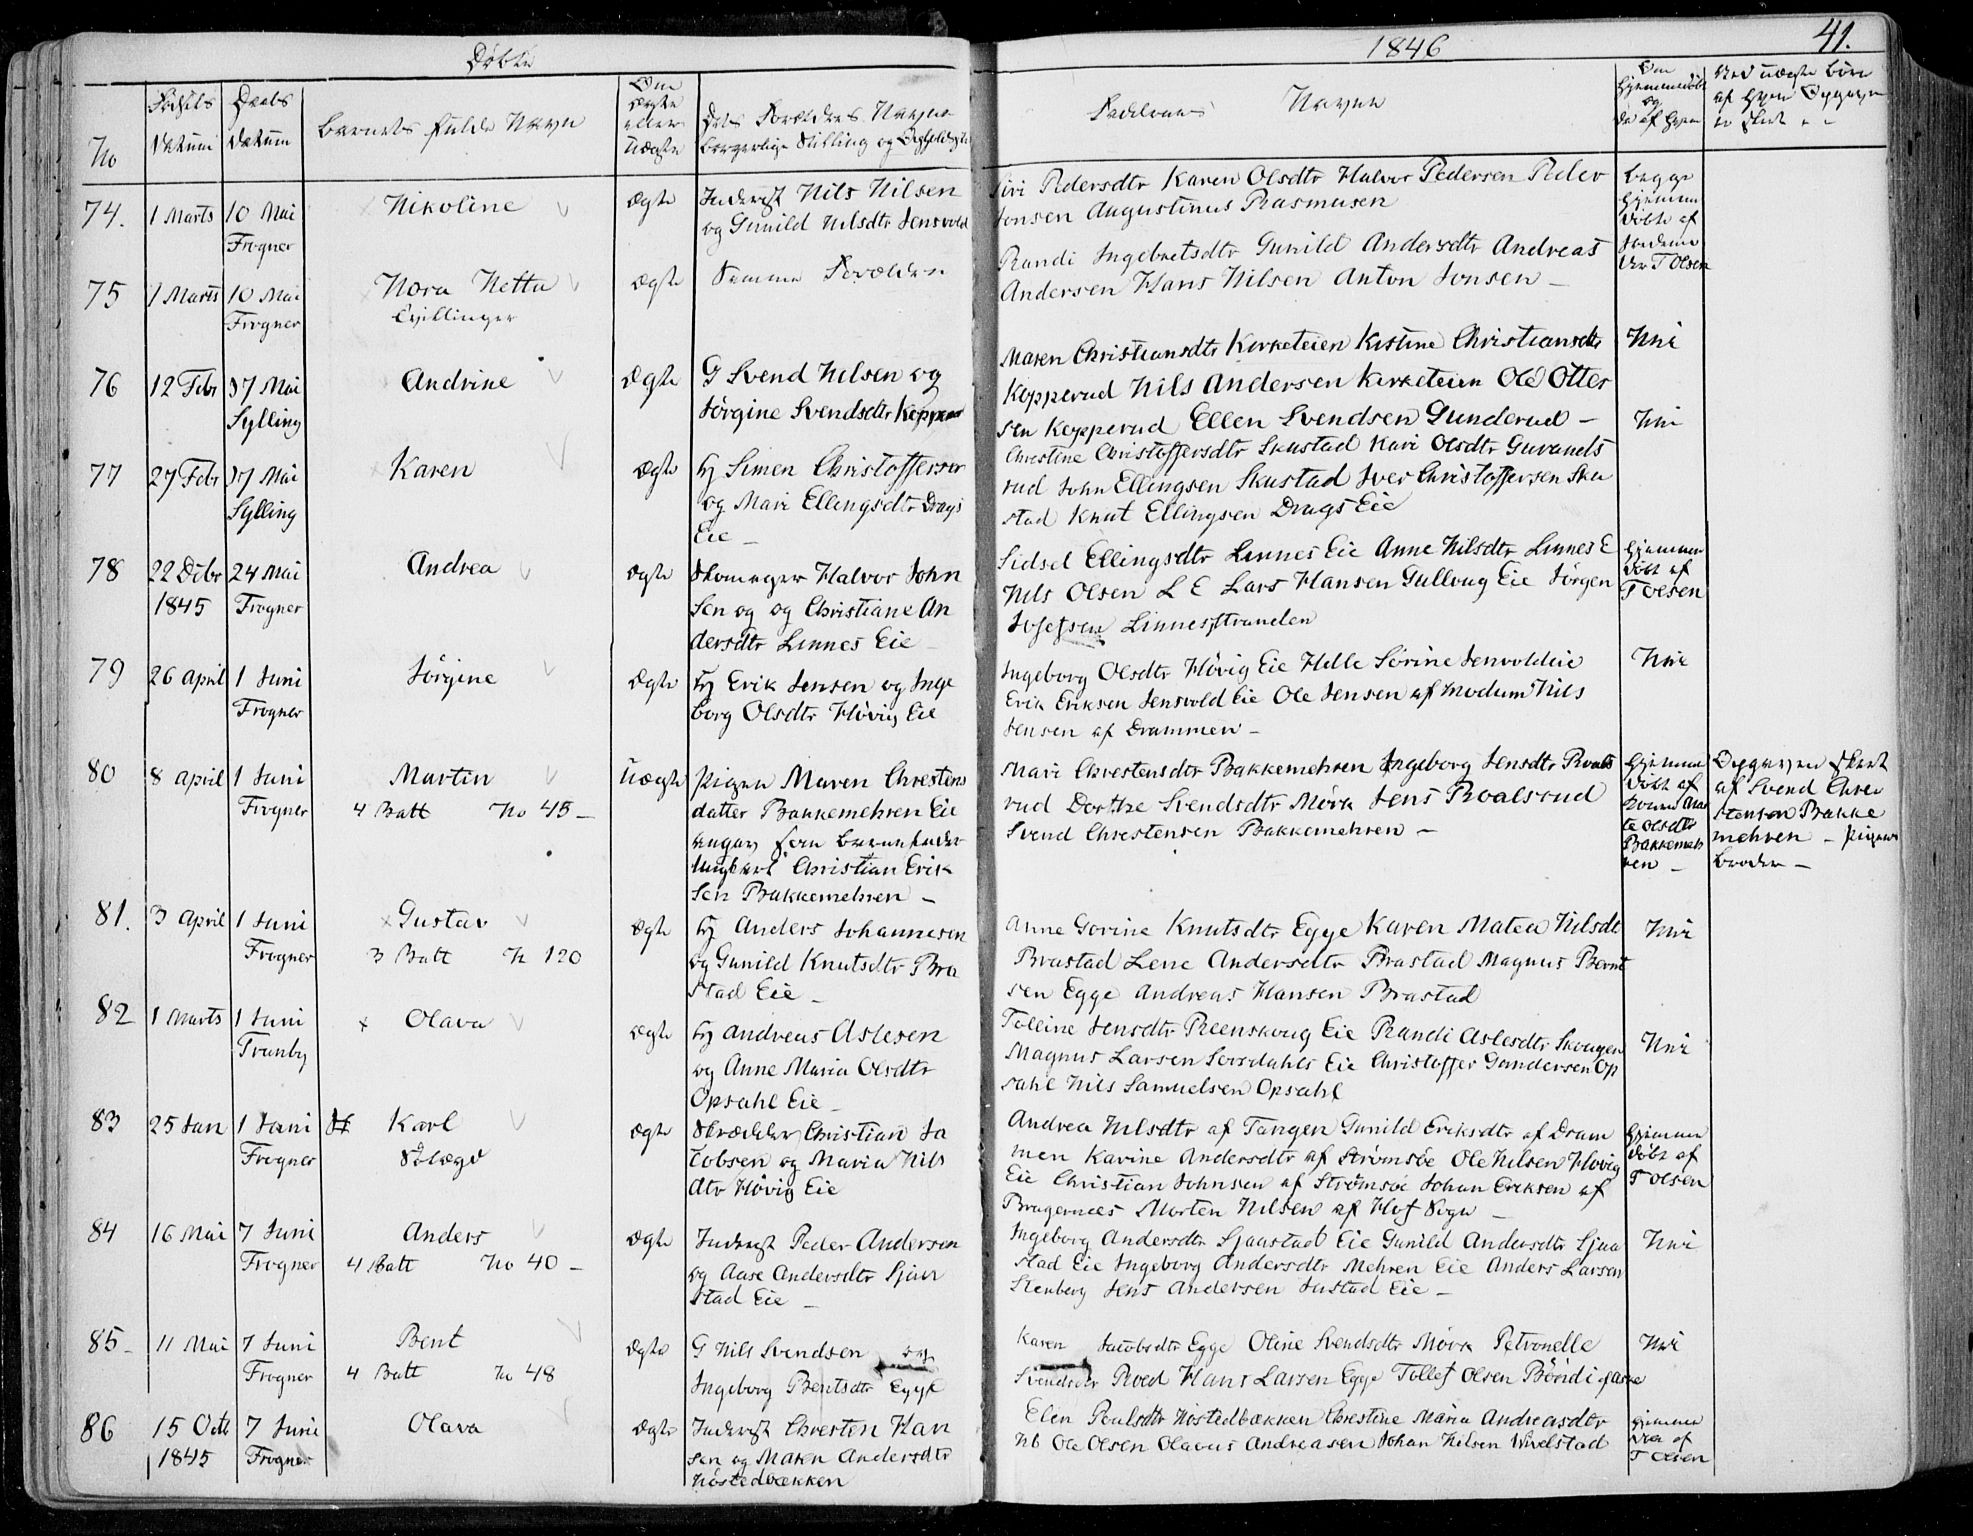 Døbte
1846
41.
No
Fødsels Datum
Daabs Datum
Barnets fulde Navn
Om ægte eller uægte
Dets Forældres Navne
borgerlige Stilling og
Faddernes Navne
Om hjemmedøbt og
Ved uægte Børn
74. 1 Marts 10 Mai Frogner Nikoline ægte
Inderst Nils Nilsen
og Gunild Nilsdtr Jensvold
Siri Pedersdtr Karen Olsdtr Halvor Pedersen Peder
Jonsen Augustinus Rasmusen
begge
hjemme
døbte af
T Olsen
75 1 Marts 10 Mai Frogner Nora Netta ægte
Tvillinger
Samme Forældre
Randi Ingebretsdtr Gunild Andersdtr Andreas
Andersen Hans Nilsen Anton Jonsen –
76 12 Febr 17 Mai Sylling Andrine ægte
G Svend Nilsen og
Jørgine Svendsdtr
Maren Christiansdtr Kirketeien Kistine Christiansdtr
Kopperud Nils Andersen Kirketeien Ole Otter
sen Kopperud Ellen Svendsen Gunderud –
Nei
77 27 Febr 17 Mai Sylling Karen ægte
Hj Simen Christoffersen
og Mari Ellingsdtr Drags
Eie –
Christine Christoffersdtr Skustad Kari Olsdtr
rud John Ellingsen Skustad Iver Christoffersen Sku
stad Knut Ellingsen Drags Eie
Nei
78 22 Dcbr 1845 24 Mai Frogner Andrea ægte
Skomager Halvor John
sen og og Christiane An
dersdtr Linnes Eie
Sidsel Ellingsdtr Linnes Eie Anne Nilsdtr Linnes E
Nils Olsen L E Lars Hansen Gullaug Eie Jørgen
Josefsen Linnesstranden
hjemme
døbt af
T Olsen
79 26 April 1 Juni Frogner Jørgine ægte
Hj Erik Jensen og Inge
borg Olsdtr Høvig Eie
Ingeborg Olsdtr Høvig Eie Helle Sørine Jensvoldeie
Erik Eriksen Jensvold Eie Ole Jensen af Modum Nils
Jensen af Drammen –
Nei
80 8 April 1 Juni Frogner Martin uægte
4 Batt No 45 –
Pigen Maren Christens
datter Bakkemehren Eie
angav som barnefader
Ungkarl Christian Erik
sen Bakkemehren –
Mari Christensdtr Bakkemehren Ingeborg Jensdtr Roals
rud Dorthe Svendsdtr Mørk Jens Roalsrud
Svend Christensen Bakkemehren –
hjemme
døbt af
te Olsdtr
Bakkemeh
ren –
Opgaven skeet
af Svend Chri
stensen Bakke
mehren – Pigens
broder –
81. 3 April 1 Juni Frogner Gustav ægte
3 Batt N 120
Hj Anders Johannesen
og Gunild Knutsdtr Bra
stad Eie –
Anne Gorine Knutsdtr Egge Karen Matea Nilsdt
Brastad Lene Andersdtr Brastad Magnus Bernt
sen Egge Andreas Hansen Brastad
Nei
82 1 Marts 1 Juni Tranby Olava ægte
Hj Andreas Aslesen
og Anne Maria Olsdtr
Opsahl Eie –
Tolline Jensdtr Reenskoug Eie Randi Aslesdtr Skougen
Magnus Larsen Sørsdahls Eie Christoffer Gundersen Op
sahl Nils Samuelsen Opsahl
Nei
83 25 Jan 1 Juni Frogner Karl ægte
Skrædder Christian Ja
cobsen og Maria Nils
dtr Høvig Eie
Andrea Nilsdtr af Tangen Gunild Eriksdtr af Dram
men Karine Andersdtr af Strømsøe Ole Nilsen Høvig
Eie Christian Johnsen af Strømsøe Johan Eriksen af
Bragernees Morten Nilsen af Hof Sogn –
hjemme
døbt af
T Olsen
84 16 Mai 7 Juni Frogner Anders ægte
4 Batt No 40 –
Inderst Peder Andersen
og Aase Andersdtr Sjaa
stad Eie –
Ingeborg Andersdtr Sjaastad Eie Gunild Andersdtr Sjaa
stad Eie Ingeborg Andersdtr Mehren Eie Anders Larsen
Stenberg Jens Andersen Justad Eie –
Nei
85 – 11 Mai 7 Juni Frogner Bent ægte
4 Batt No 48
G Nils Svendsen og
Ingeborg Bentsdtr Egge
Karen Jacobsdtr Egge Oline Svendsdtr Mørk Petronelle
Svendsdtr Roed Hans Larsen Egge Tollef Olsen
Nei
86 15 Octb 1845 7 Juni Frogner Olava ægte
Inderst Christen Han
sen og Maren Andersdtr
Høstedbækken
Elen Poulsdtr Høstedbækken Christine Maria Andreasdtr
Hb Ole Olsen Olavus Andreasen Johan Nilsen Wivelstad
hjemme
døbt af
T Olsen